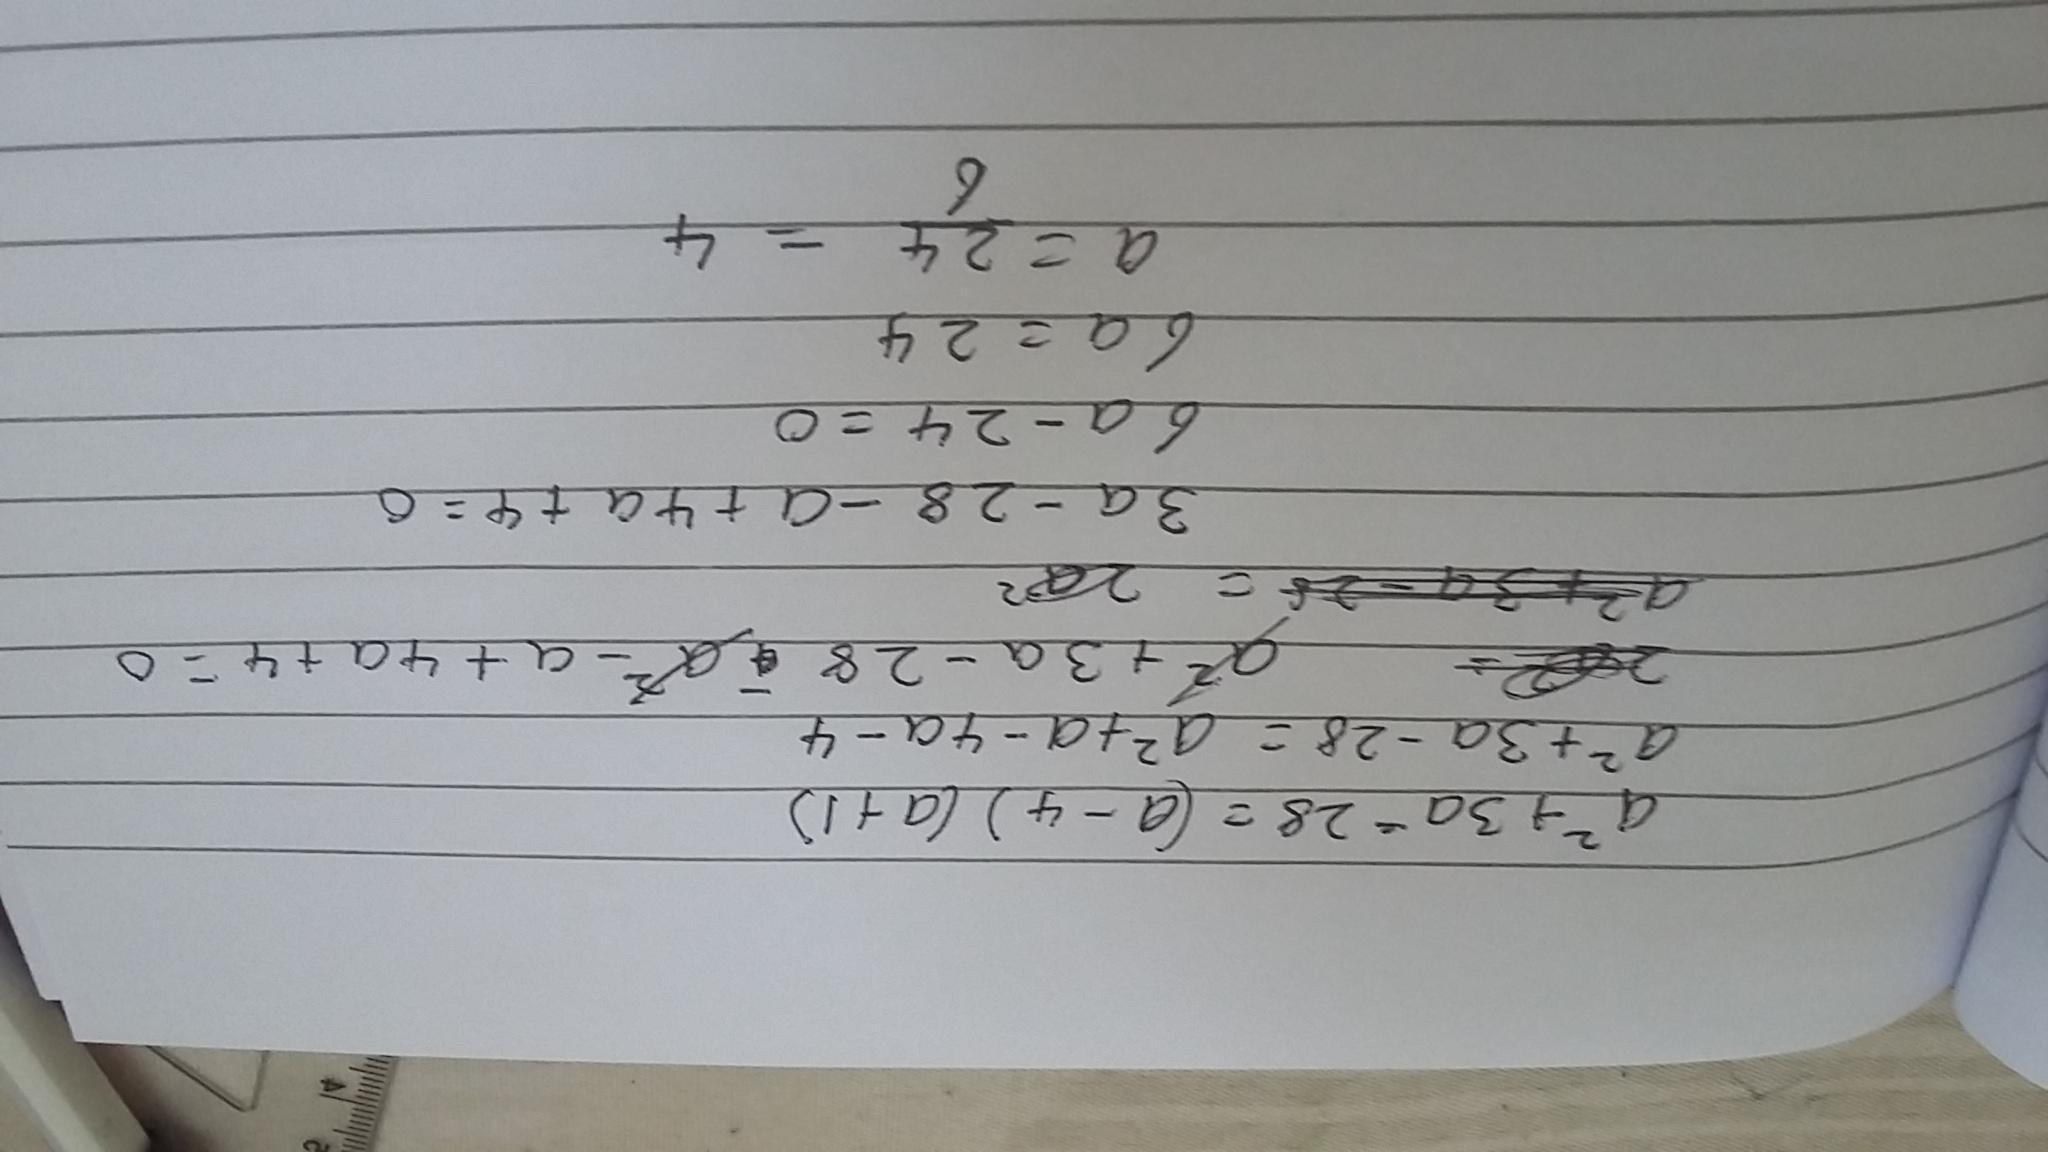 a² + 3a - 28 = (a - 4) (a + 1)
a² + 3a - 28 = a² + a - 4a - 4
a² + 3a - 28 - a² - a + 4a + 4 = 0
a² + 3a - 28 = 2a²
3a - 28 - a + 4a + 4 = 0
6a - 24 = 0
6a = 24
a = 24/6 = 4
4